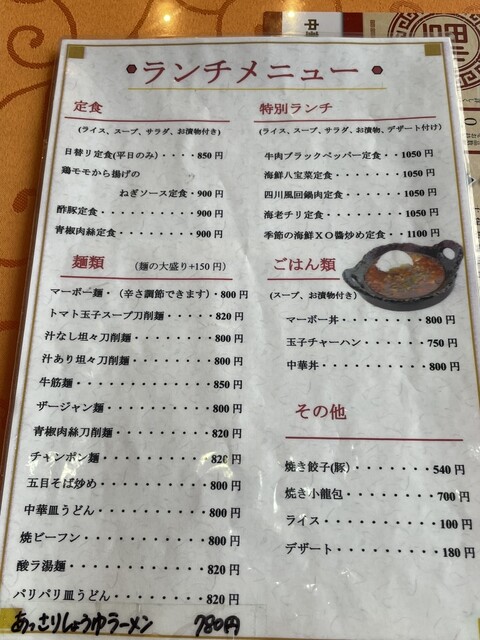 ランチメニュー
定食
(ライス、スープ、サラダ、お漬物付き)
日替り定食(平日のみ)・・・・850円
鶏モモから揚げの
ねぎソース定食・900円
酢豚定食・・・・・・・・・・900円
青椒肉絲定食・・・・・・・・900円
麺類 (麺の大盛り+150円)
マーボー麺・(辛さ調節できます)・800円
トマト玉子スープ刀削麺・・・・・820円
汁なし坦々刀削麺・・・・・・・・800円
汁あり坦々刀削麺・・・・・・・・800円
牛筋麺・・・・・・・・・・・・・850円
ザージャン麺・・・・・・・・・・800円
青椒肉絲刀削麺・・・・・・・・・820円
チャンポン麺・・・・・・・・・・820円
五目そば炒め・・・・・・・・・・800円
中華皿うどん・・・・・・・・・・800円
焼ビーフン・・・・・・・・・・・800円
酸ラ湯麺・・・・・・・・・・・・820円
パリパリ皿うどん・・・・・・・・820円
あっさりしょうゆラーメン 780円
特別ランチ
(ライス、スープ、サラダ、お漬物、デザート付け)
牛肉ブラックペッパー定食・・1050円
海鮮八宝菜定食・・・・・・・1050円
四川風回鍋肉定食・・・・・・1050円
海老チリ定食・・・・・・・・1050円
季節の海鮮XO醬炒め定食・・1100円
ごはん類
(スープ、お漬物付き)
マーボー丼・・・・・・・・800円
玉子チャーハン・・・・・・750円
中華丼・・・・・・・・・・800円
その他
焼き餃子(豚)・・・・・・・・540円
焼き小龍包・・・・・・・・・700円
ライス・・・・・・・・・・・100円
デザート・・・・・・・・・・180円